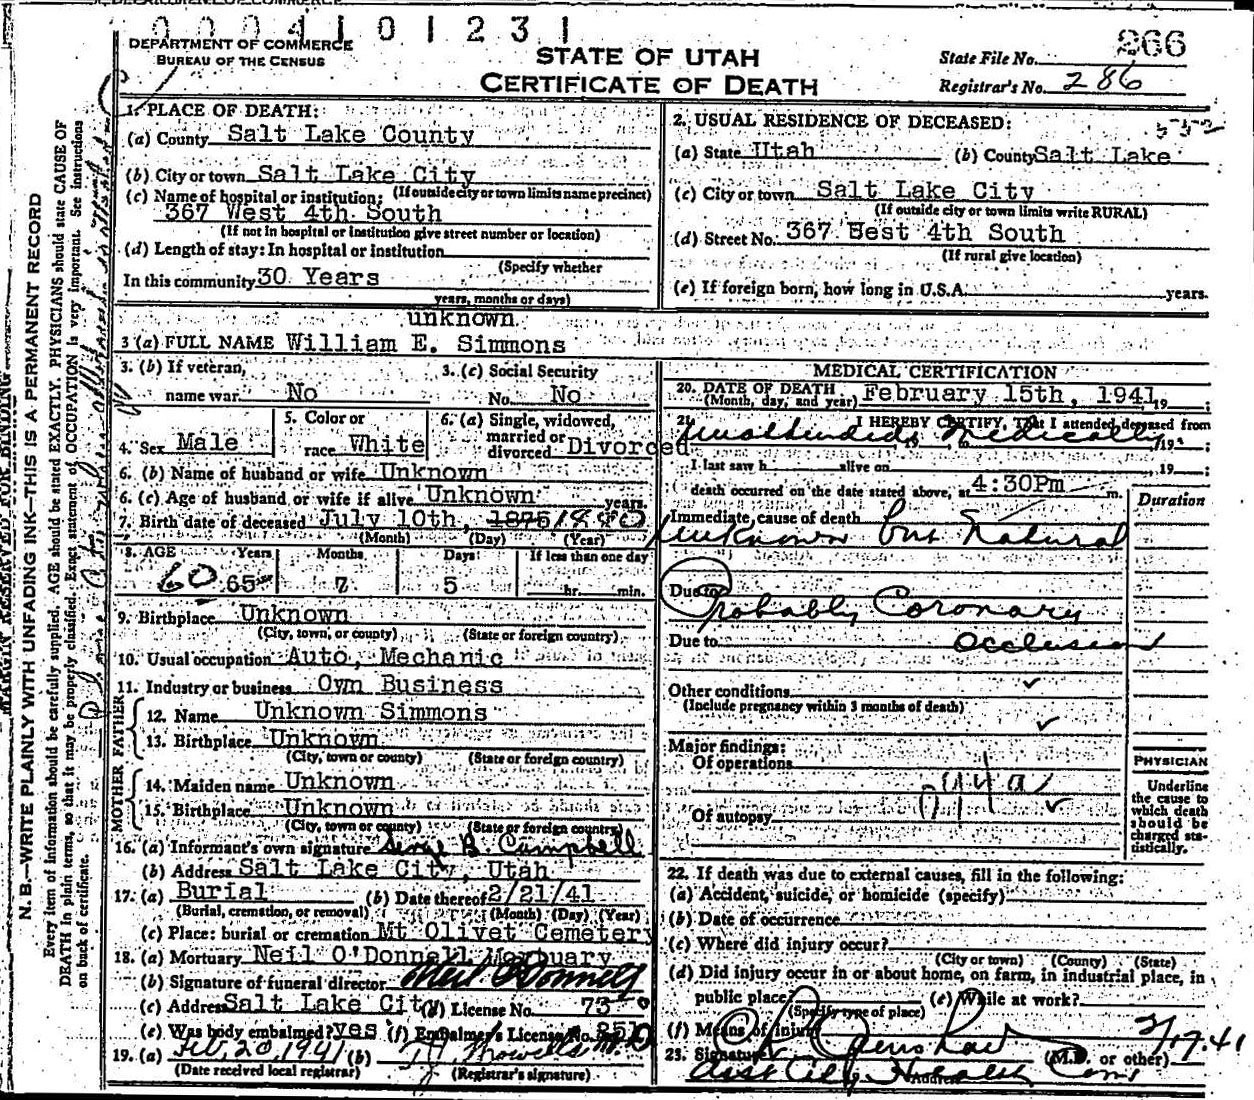 0004101231
DEPARTMENT OF COMMERCE
BUREAU OF THE CENSUS
STATE OF UTAH
CERTIFICATE OF DEATH
State File No. 266
Registrar's No. 286
MARGIN RESERVED FOR BINDING
N. B.—WRITE PLAINLY WITH UNFADING INK—THIS IS A PERMANENT RECORD
Every item of information should be carefully supplied. AGE should be stated EXACTLY. PHYSICIANS should state CAUSE OF
DEATH in plain terms, so that it may be properly classified. Exact statement of OCCUPATION is very important. See instructions
on back of certificate.
1. PLACE OF DEATH:
(a) County Salt Lake County
(b) City or town Salt Lake City
(If outside city or town limits name precinct)
(c) Name of hospital or institution:
367 West 4th South
(If not in hospital or institution give street number or location)
(d) Length of stay: In hospital or institution
(Specify whether
In this community 30 Years
years, months or days)
2. USUAL RESIDENCE OF DECEASED:
(a) State Utah (b) County Salt Lake
(c) City or town Salt Lake City
(If outside city or town limits write RURAL)
(d) Street No. 367 West 4th South
(If rural give location)
(e) If foreign born, how long in U.S.A. years.
unknown
3 (a) FULL NAME William E. Simmons
3. (b) If veteran, name war No
3. (c) Social Security No. No
4. Sex Male
5. Color or race White
6. (a) Single, widowed, married or divorced Divorced
6. (b) Name of husband or wife Unknown
6. (c) Age of husband or wife if alive Unknown years
7. Birth date of deceased July 10th, 1875 1880
(Month) (Day) (Year)
8. AGE Years Months Days If less than one day
60 65 7 5 hr. min.
9. Birthplace Unknown
(City, town, or county) (State or foreign country)
10. Usual occupation Auto, Mechanic
11. Industry or business Own Business
FATHER
12. Name Unknown Simmons
13. Birthplace Unknown
(City, town or county) (State or foreign country)
MOTHER
14. Maiden name Unknown
15. Birthplace Unknown
(City, town or county) (State or foreign country)
16. (a) Informant's own signature George B. Campbell
(b) Address Salt Lake City, Utah
17. (a) Burial (b) Date thereof 2/21/41
(Burial, cremation, or removal) (Month) (Day) (Year)
(c) Place: burial or cremation Mt Olivet Cemetery
18. (a) Mortuary Neil O'Donnell Mortuary
(b) Signature of funeral director Neil O'Donnell
(c) Address Salt Lake City (d) License No. 73
(e) Was body embalmed? yes (f) Embalmer's License No.
19. (a) Feb. 20, 1941 (b)
(Date received local registrar) (Registrar's signature)
MEDICAL CERTIFICATION
20. DATE OF DEATH February 15th, 1941, 19 ;
(Month, day, and year)
21. I HEREBY CERTIFY, That I attended deceased from
Unattended Medically, 19 ;
I last saw h alive on , 19 ;
death occurred on the date stated above, at 4:30Pm m.
Duration
Immediate cause of death
Unknown but Natural
Due to Probably Coronary
Due to Occlusion
Other conditions
(Include pregnancy within 3 months of death)
Major findings:
Of operations
Of autopsy
PHYSICIAN
Underline the cause to which death should be charged statistically.
22. If death was due to external causes, fill in the following:
(a) Accident, suicide, or homicide (specify)
(b) Date of occurrence
(c) Where did injury occur?
(City or town) (County) (State)
(d) Did injury occur in or about home, on farm, in industrial place, in
public place? (e) While at work?
(Specify type of place)
(f) Means of injury
23. Signature (M.D. or other) 2/17.41
Address Asst City Health Com